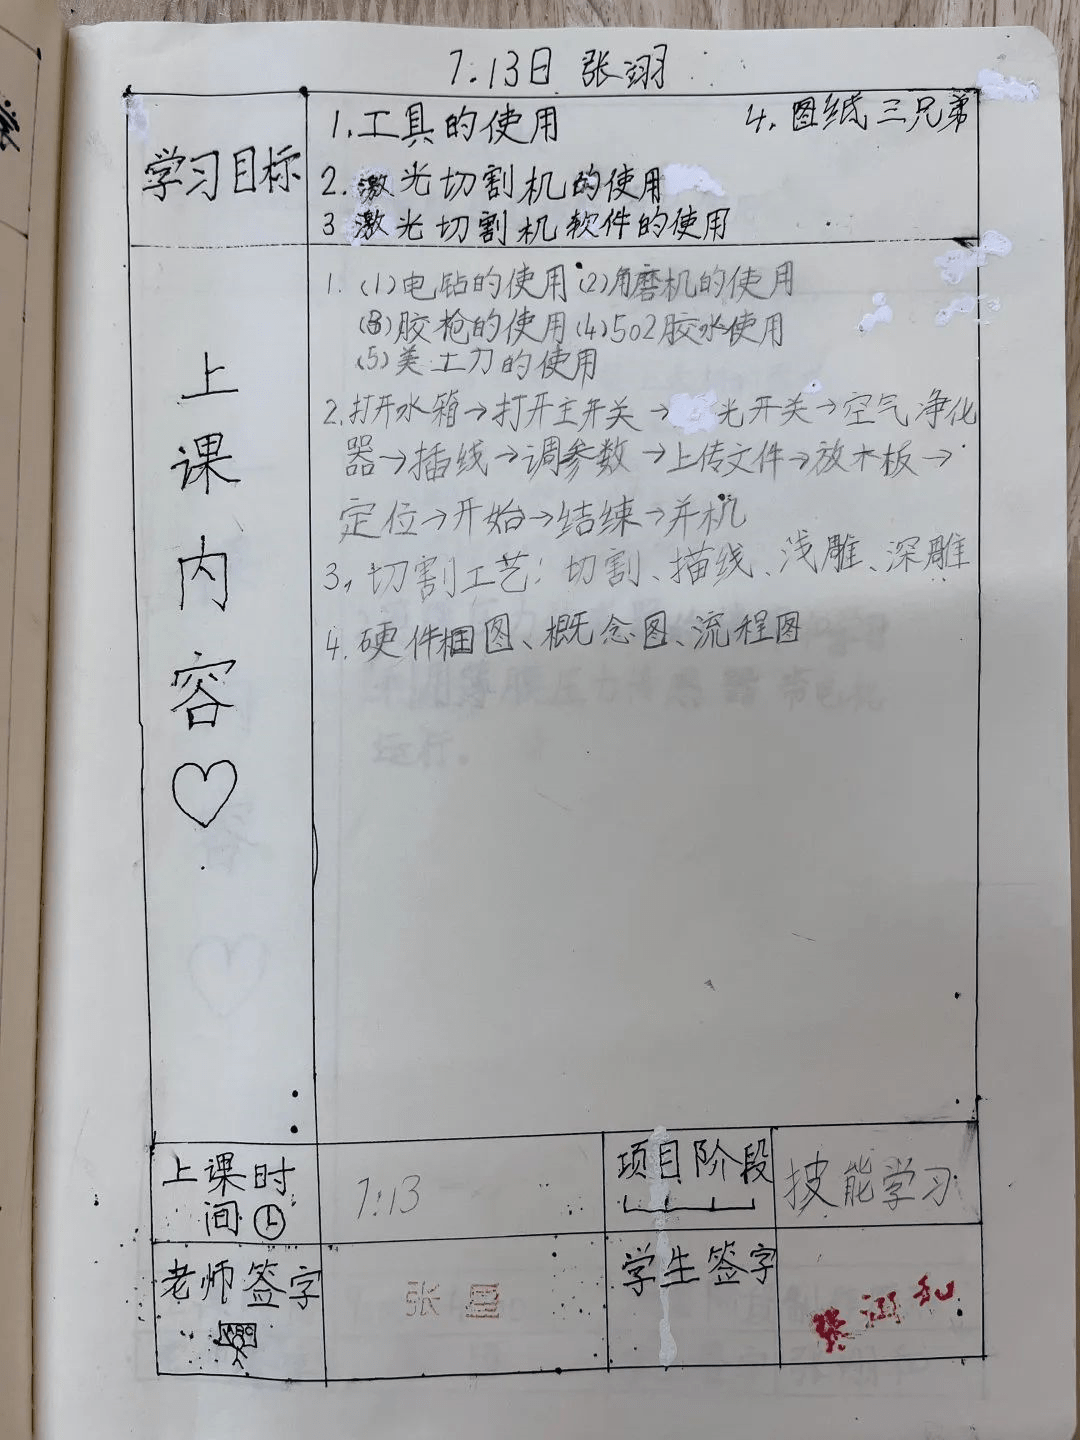 7.13日 张翊
学习目标
1.工具的使用
4.图纸三兄弟
2.激光切割机的使用
3 激光切割机软件的使用
上课内容
1. (1)电钻的使用 (2)角磨机的使用
(3)胶枪的使用 (4)502胶水使用
(5)美工刀的使用
2.打开水箱→打开主开关→ 光开关→空气净化
器→插线→调参数→上传文件→放木板→
定位→开始→结束→关机
3,切割工艺:切割、描线、浅雕、深雕
4.硬件框图、概念图、流程图
上课时
间
7:13
项目阶段
技能学习
老师签字
张
学生签字
张